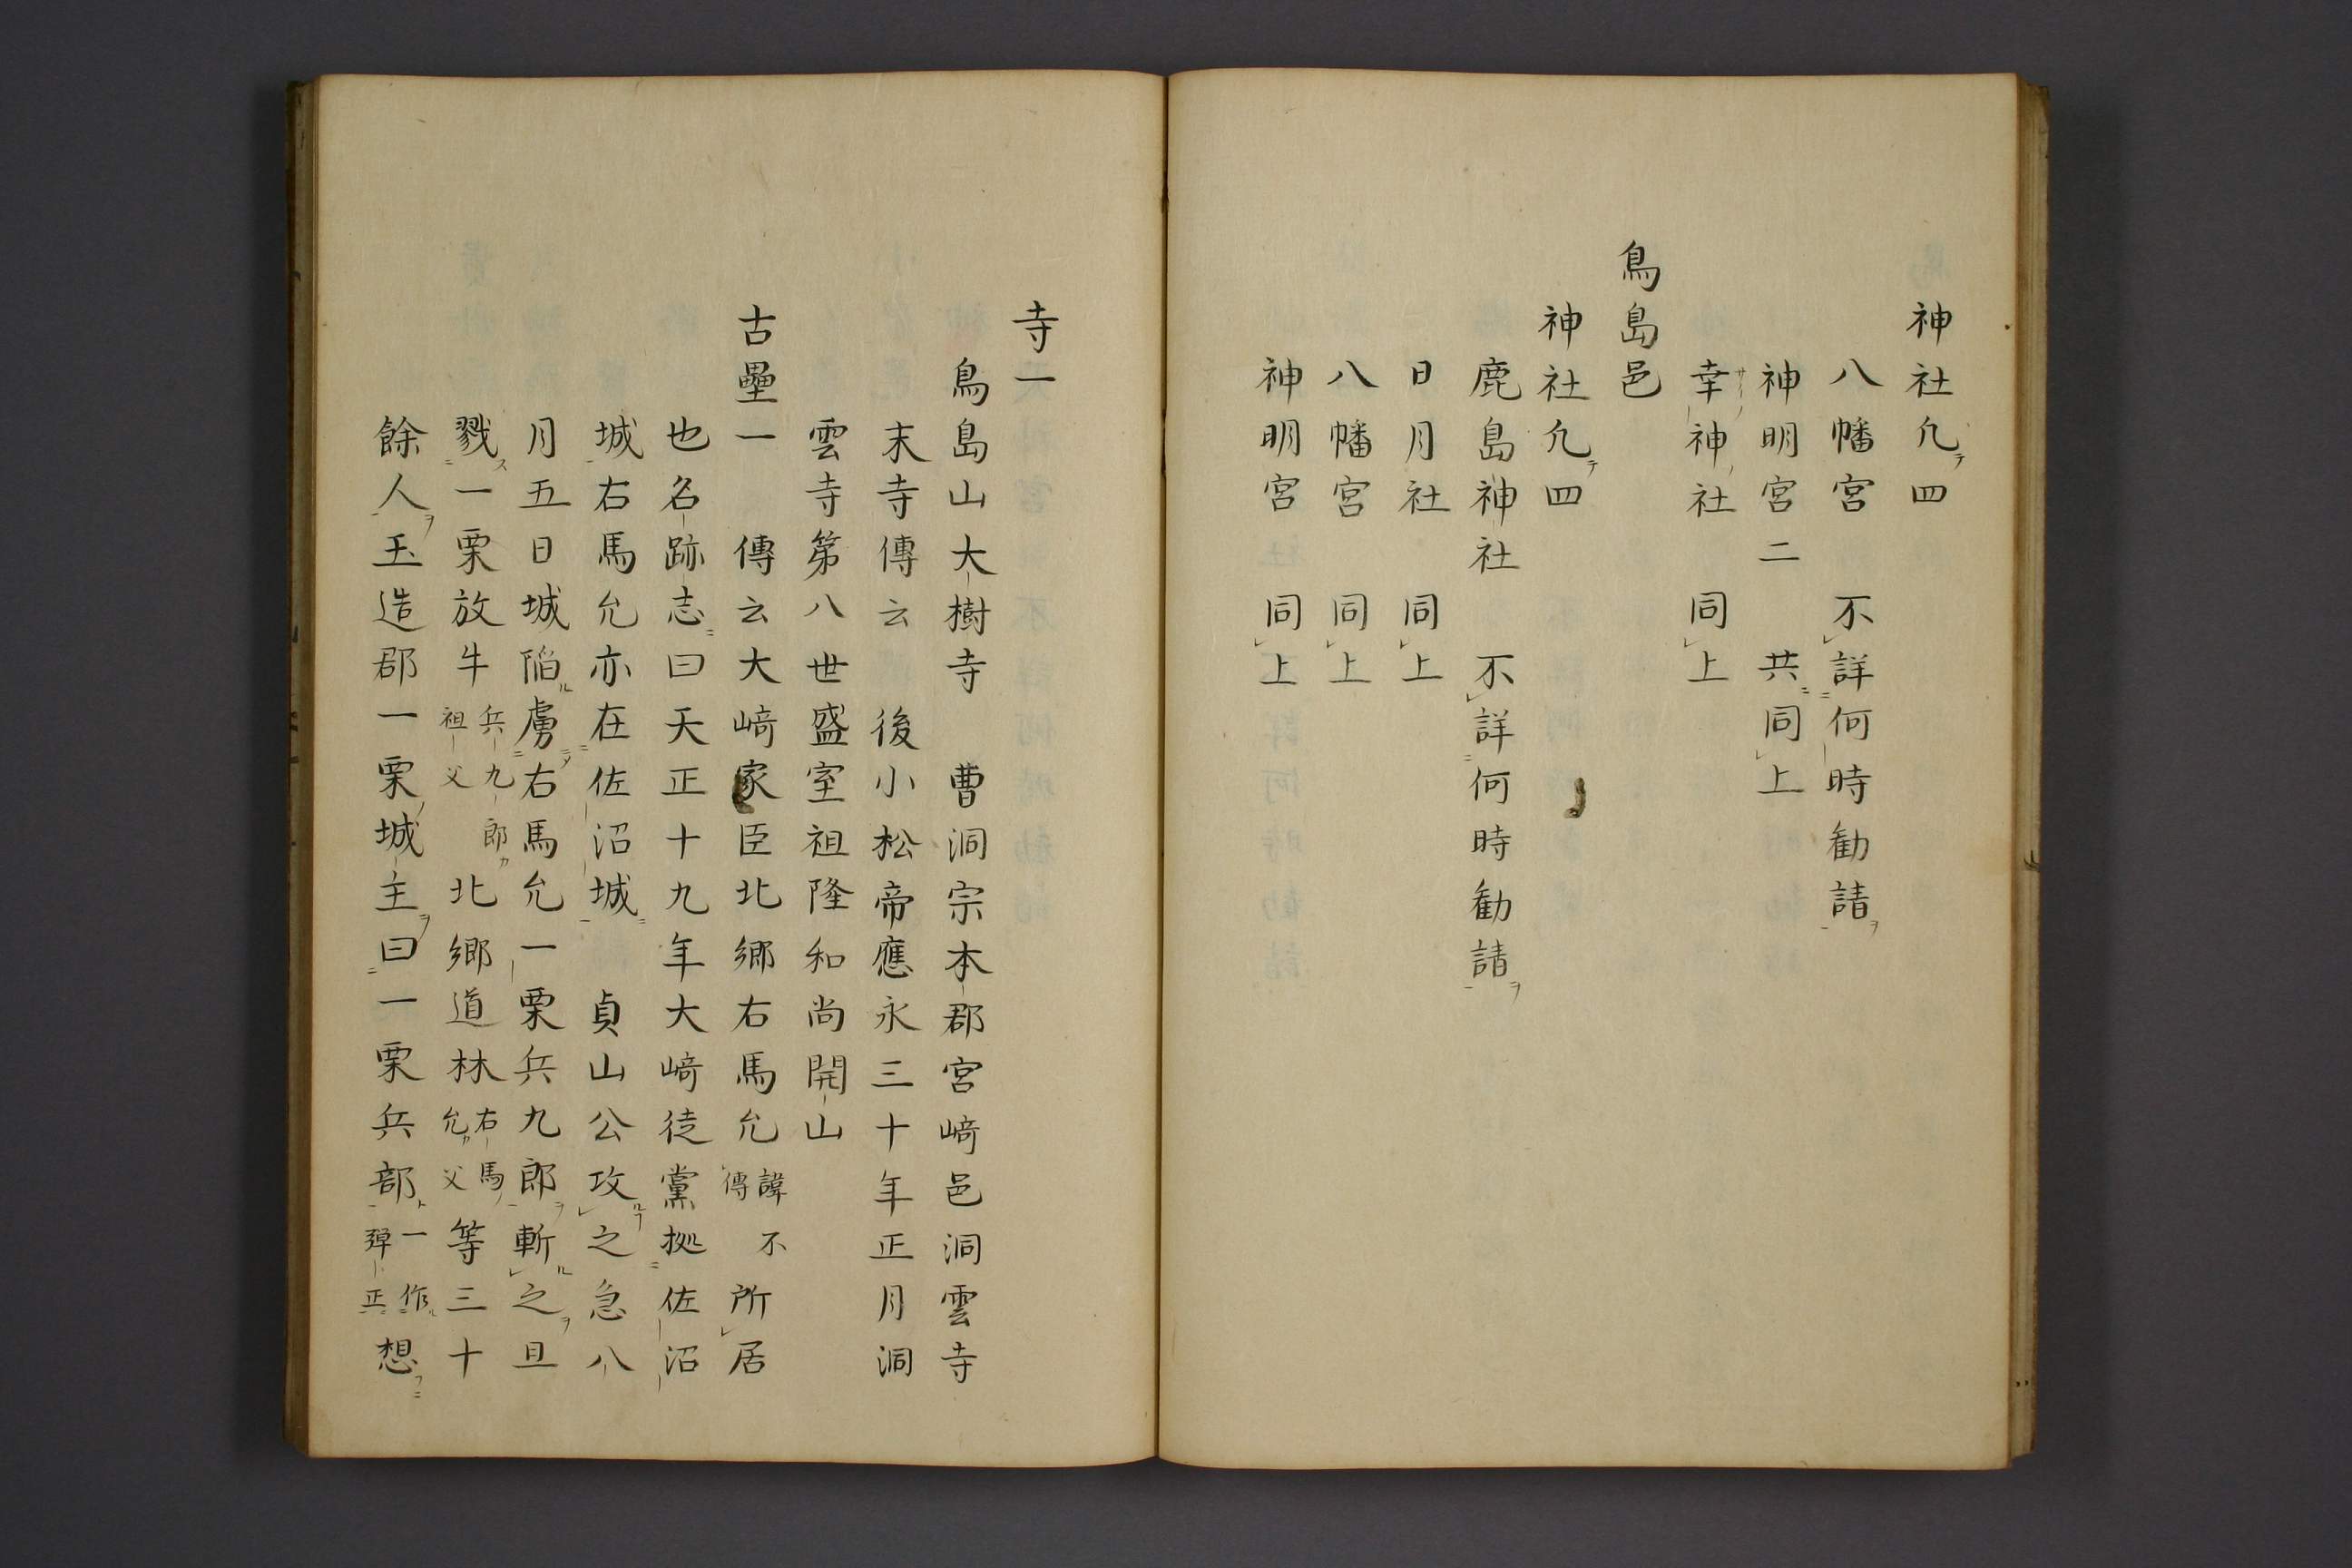 神社凢四
八幡宮　不詳何時勧請
神明宮二　共同上
幸神社　同上
鳥島邑
神社凢四
鹿島神社　不詳何時勧請
日月社　同上
八幡宮　同上
神明宮　同上
寺一
鳥島山大樹寺　曹洞宗本郡宮﨑邑洞雲寺
末寺傳云　後小松帝應永三十年正月洞
雲寺第八世盛室祖隆和尚開山
古壘一　傳云大﨑家臣北郷右馬允諱不傳所居
也名跡志曰天正十九年大﨑徒黨拠佐沼
城右馬允亦在佐沼城　貞山公攻之急八
月五日城陥虜右馬允一栗兵九郎斬之且
戮一栗放牛兵九郎祖父北郷道林右馬允父等三十
餘人玉造郡一栗城主曰一栗兵部一作弾正想